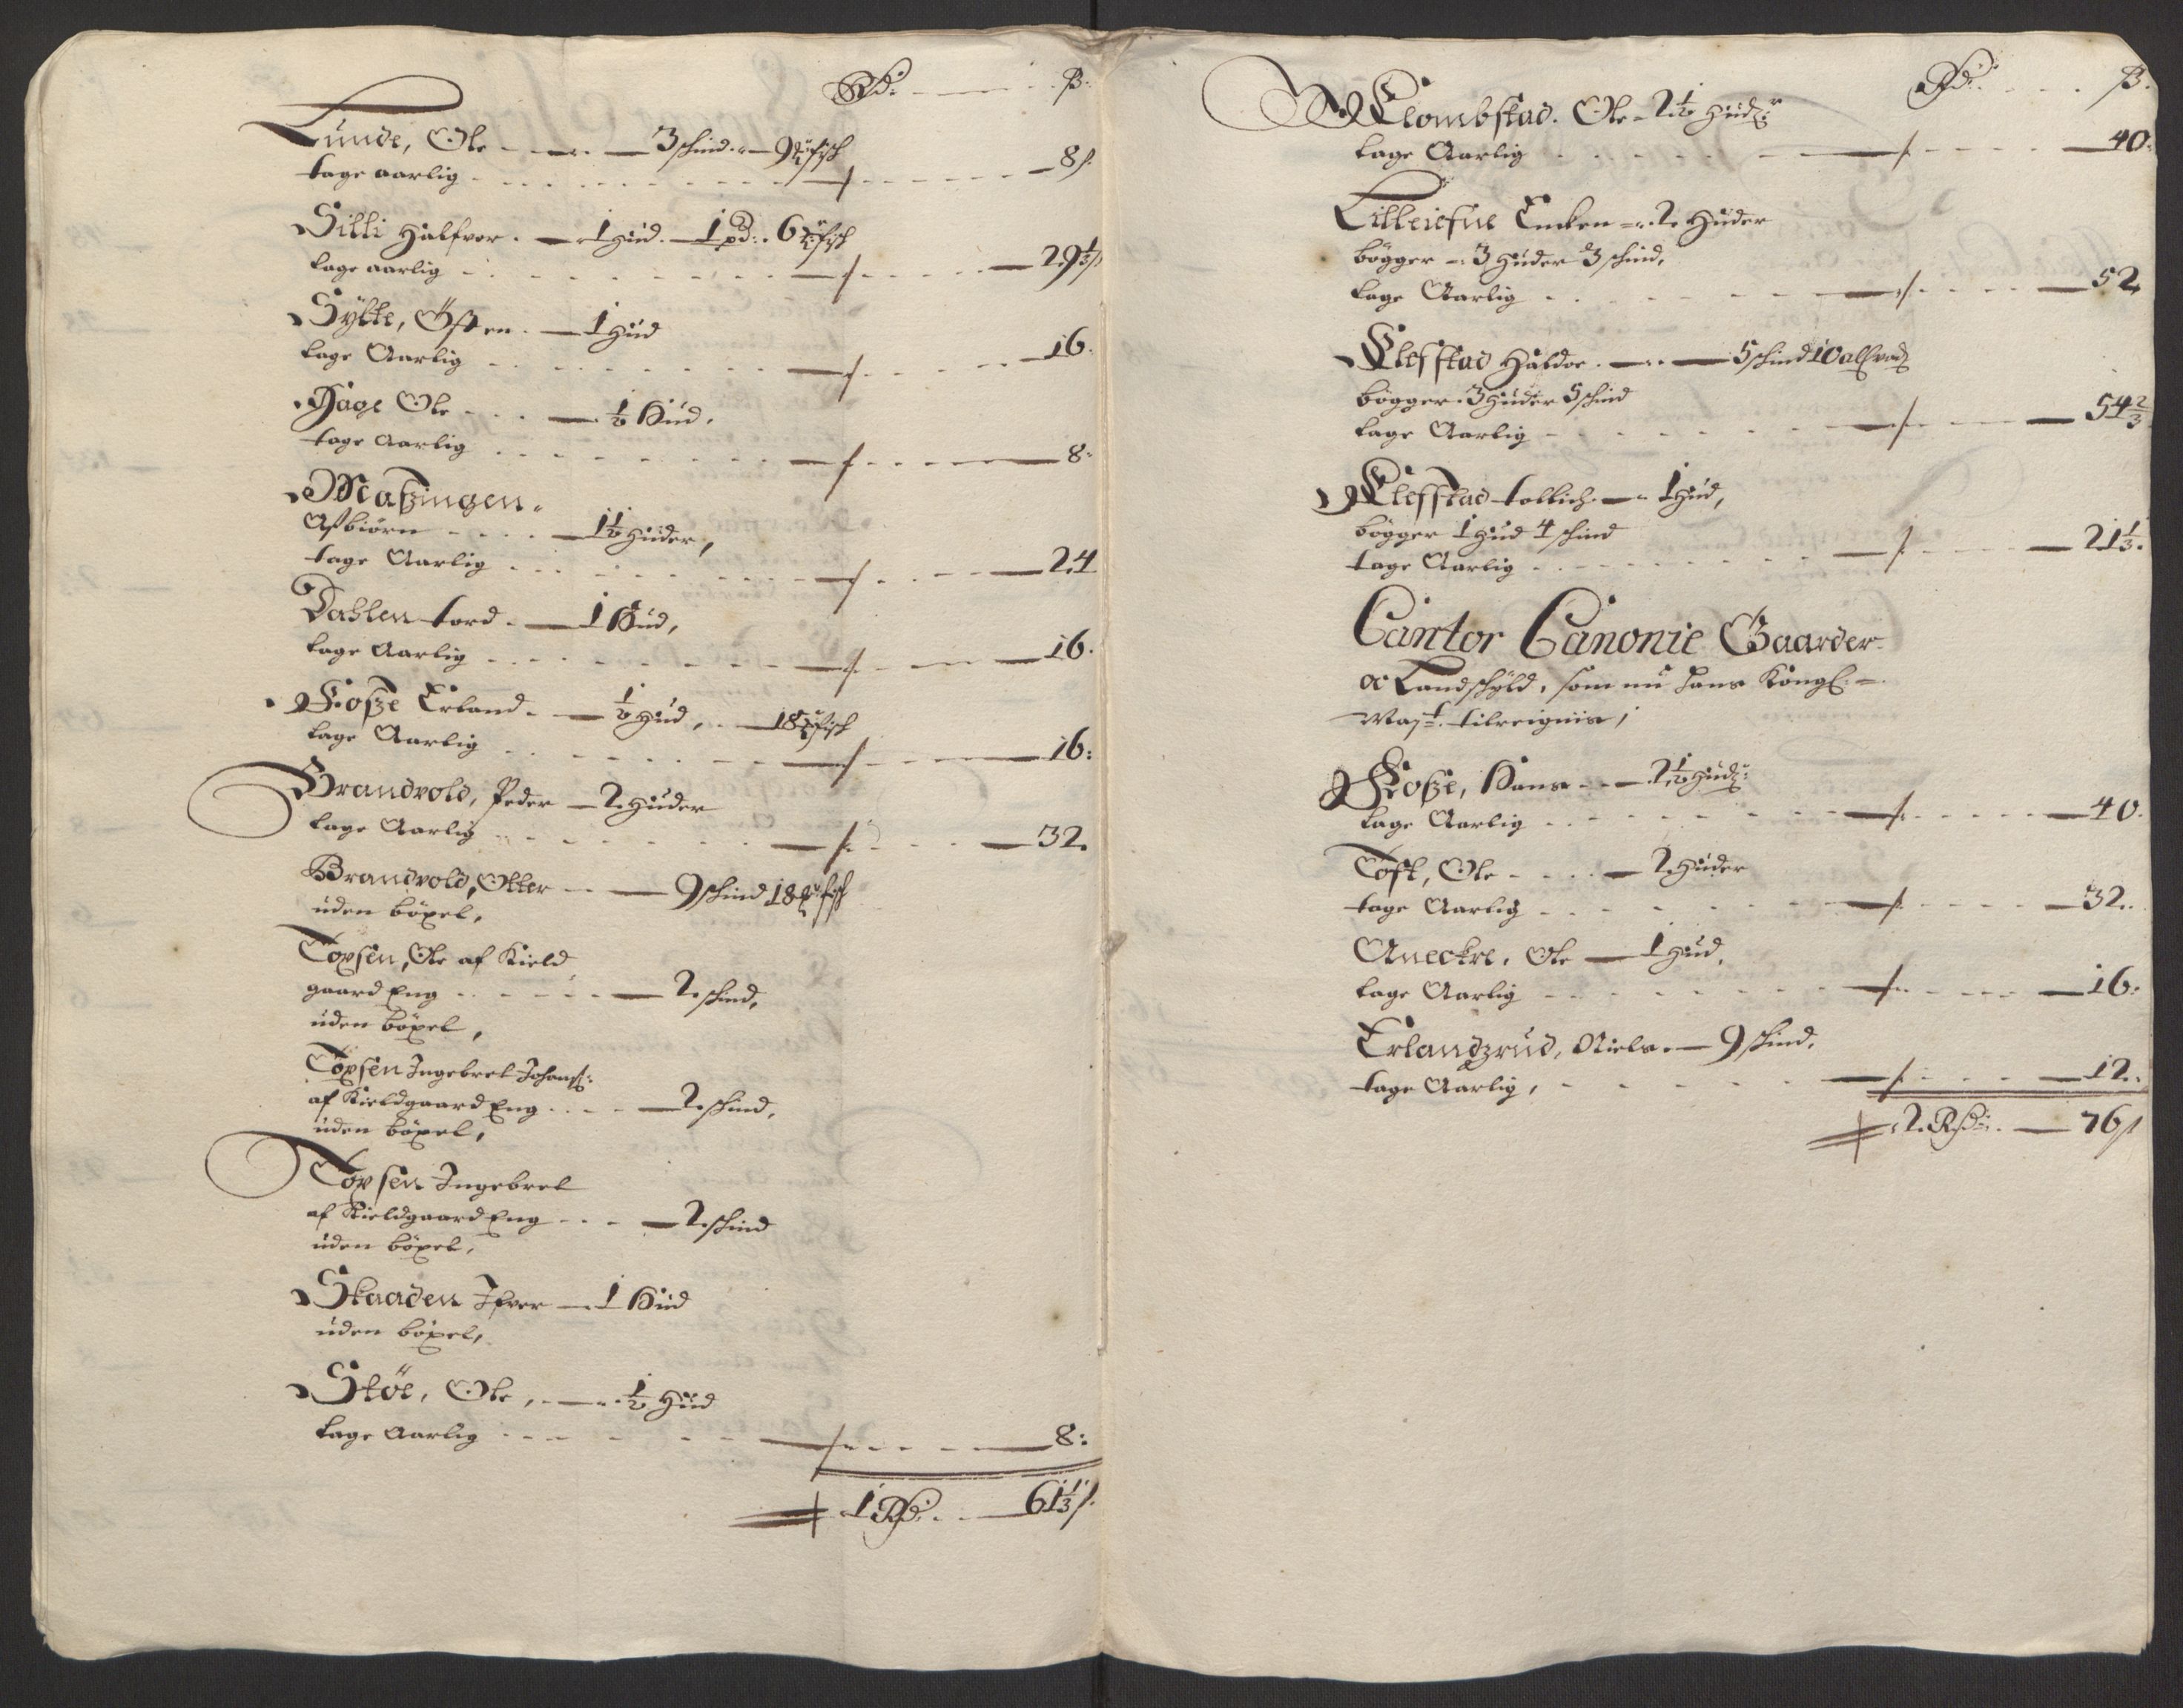 Rd: ß:
Lunde, Ole 3 schind. 9 fisch
tage aarlig 8 ß
Silli Halfvor. 1 Hud. 1 pd: 6 fisch
tage aarlig 29 1/3 ß
Sylte, Östen. 1 Hud
tage Aarlig 16.
Hage Ole 1/2 Hud.
tage Aarlig 8:
Maszingen.
Asbiörn 1 1/2 Huder,
tage Aarlig 24
Dahlen tord. 1 Hud,
tage Aarlig 16.
Fosze Erland. 1/2 Hud, 18 fisch
tage Aarlig 16:
Brandvold, Peder 2 Huder
tage Aarlig 32.
Brandvold, Otter 9 schind 18 fisch
uden böxel,
Torsen, Ole af Kield
gaard Eng 2 schind,
uden böxel,
Torsen Ingebret Johans:
af Kieldgaard Eng 2 schind,
uden böxel,
Torsen Ingebret
af Kieldgaard Eng 2 schind
uden böxel,
Skaaden Ifver 1 Hud
uden böxel,
Stöe, Ole, 1/2 Hud
tage Aarlig 8:
1 Rd: 61 1/3 ß.
Rd: ß.
Klombstad. Ole 2 1/2 Hudr
tage Aarlig 40:
Lilleiefue Encken 2 Huder
bögger 3 Huder 3 schind,
tage Aarlig 52,
Klefstad Haldor. 5 schind 10
bögger 3 Huder 5 schind
tage Aarlig 54 2/3
Klefstad tollich 1 Hud,
bögger 1 Hud 4 schind
tage Aarlig 21 1/3.
Cantor Canonie Gaarder
oc Landschyld, som nu hans Kongl:
May:t tilreignis,
Fosze, Hans 2 1/2 Hudr:
tage Aarlig 40.
Toft, Ole 2 Huder
tage Aarlig 32.
Aneckre, Ole 1 Hud,
tage Aarlig 16:
Erlandzrud, Niels. 9 schind,
tage Aarlig, 12.
2. Rd:. 76 ß